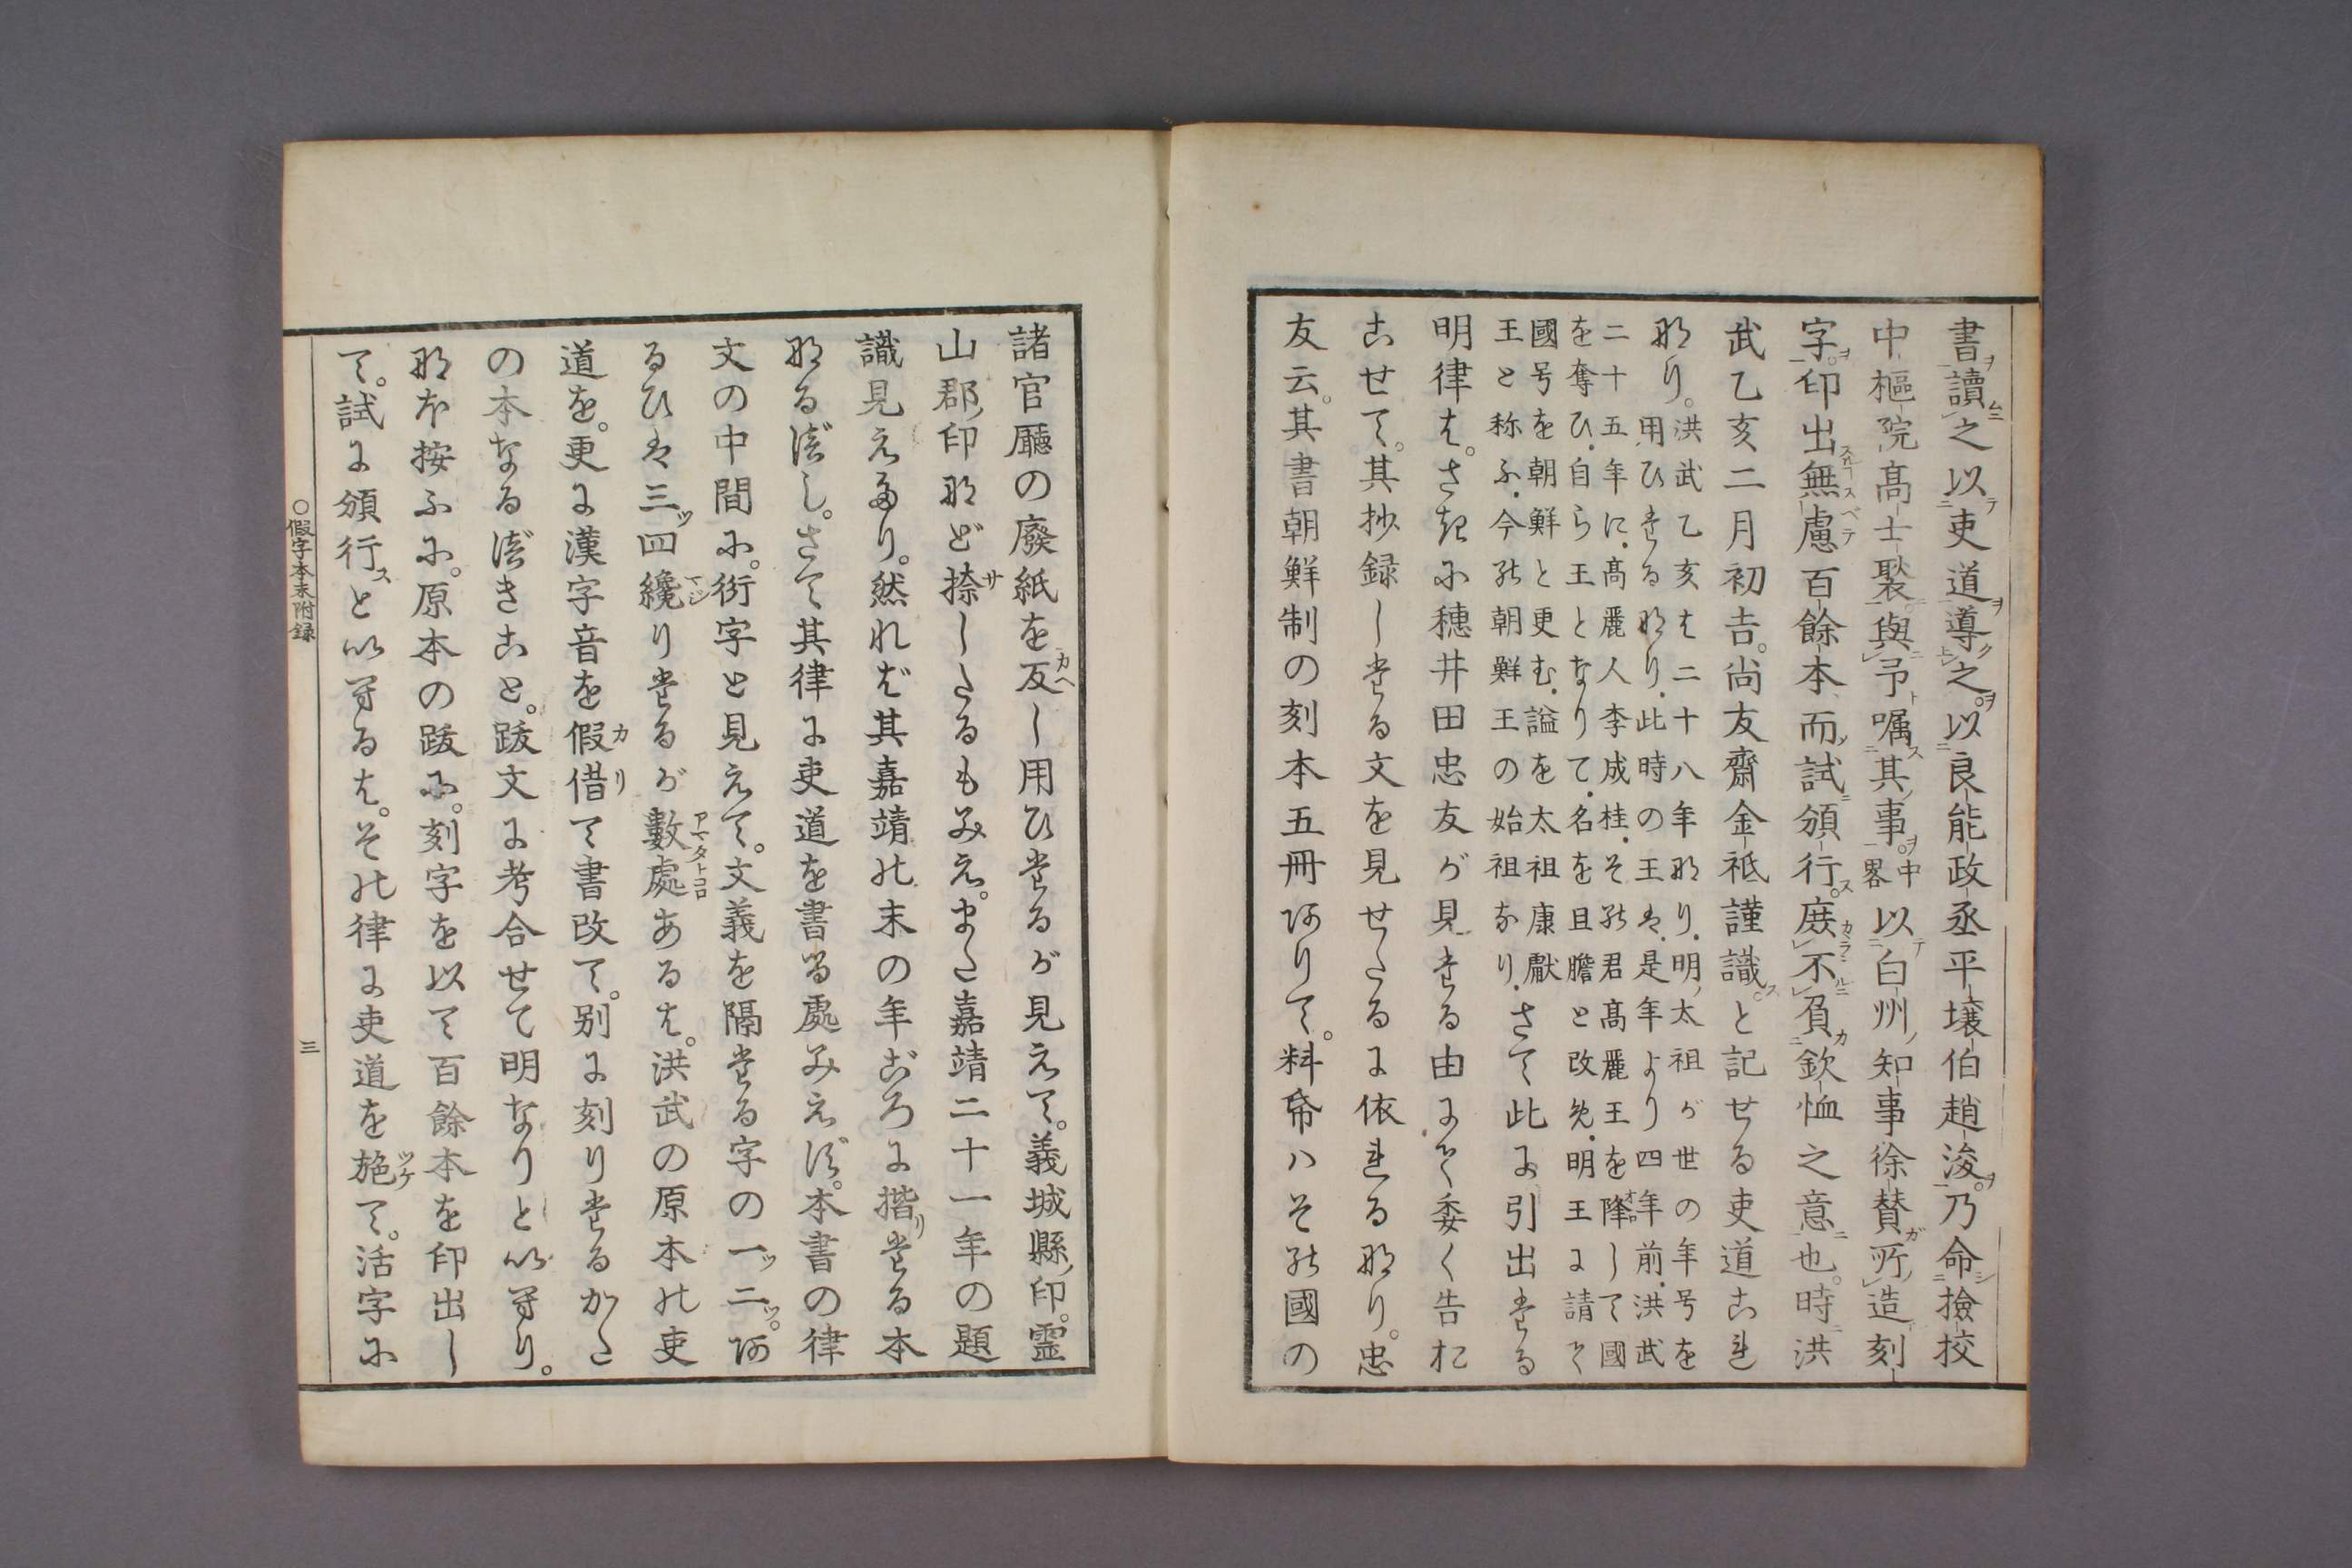 書讀之以吏道導之。以良能政丞平壤伯趙浚。乃命撿挍
中樞院髙士褧。與予嘱其事。中畧以白州知事徐賛所造刻
字。印出無慮百餘本、而試頒行。庻不負欽恤之意也。時洪
武乙亥二月初吉。尚友齋金祗謹識。と記せる吏道これ
なり。洪武乙亥は二十八年なり.明ノ太祖が世の年号を
用ひたるなり.此時の王は.是年より四年前.洪武
二十五年に.髙麗人李成桂.その君髙麗王を降して國
を奪ひ.自ら王となりて.名を旦膽と改め.明王に請て
國号を朝鮮と更む.謚を太祖康獻
王と称ふ.今の朝鮮王の始祖なり.さて此に引出たる
明律は。さきに穗井田忠友が見たる由にて委く告お
こせて。其抄録したる文を見せたるに依れるなり。忠
友云。其書朝鮮制の刻本五冊ありて。料帋ハその國の
諸官廳の廢紙を反し用ひたるが見えて。義城縣ノ印。霊
山郡ノ印など捺したるもみえ。また嘉靖二十一年の題
識見えたり。然れば其嘉靖の末の年ごろに搨りたる本
なるべし。さて其律に吏道を書る處みえず。本書の律
文の中間に。衍字と見えて。文義を隔たる字の一ッ二ッ。あ
るひは三ッ四纔りたるが數處あるは。洪武の原本の吏
道を。更に漢字音を假借て書改て。別に刻りたるかた
の本なるべきこと。跋文に考合せて明なりといへり。
なほ按ふに。原本の跋に。刻字を以て百餘本を印出し
て。試に頒行スといへるは。その律に吏道を施て。活字に
○假字本末附録
三